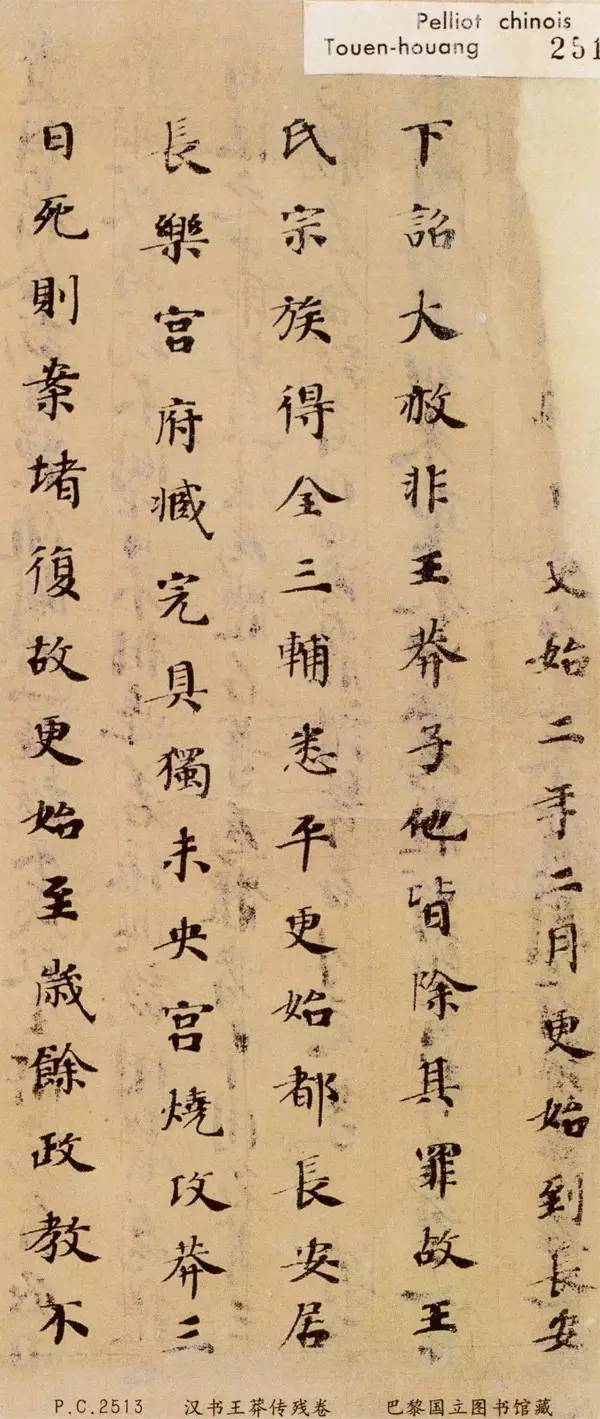 Pelliot chinois
Touen-houang 251
始二年二月更始到長安
下詔大赦非王莽子他皆除其罪故王
氏宗族得全三輔悉平更始都長安居
長樂宮府臧完具獨未央宮燒攻莽三
日死則案堵復故更始至歲餘政教不
P.C.2513 汉书王莽传残卷 巴黎国立图书馆藏